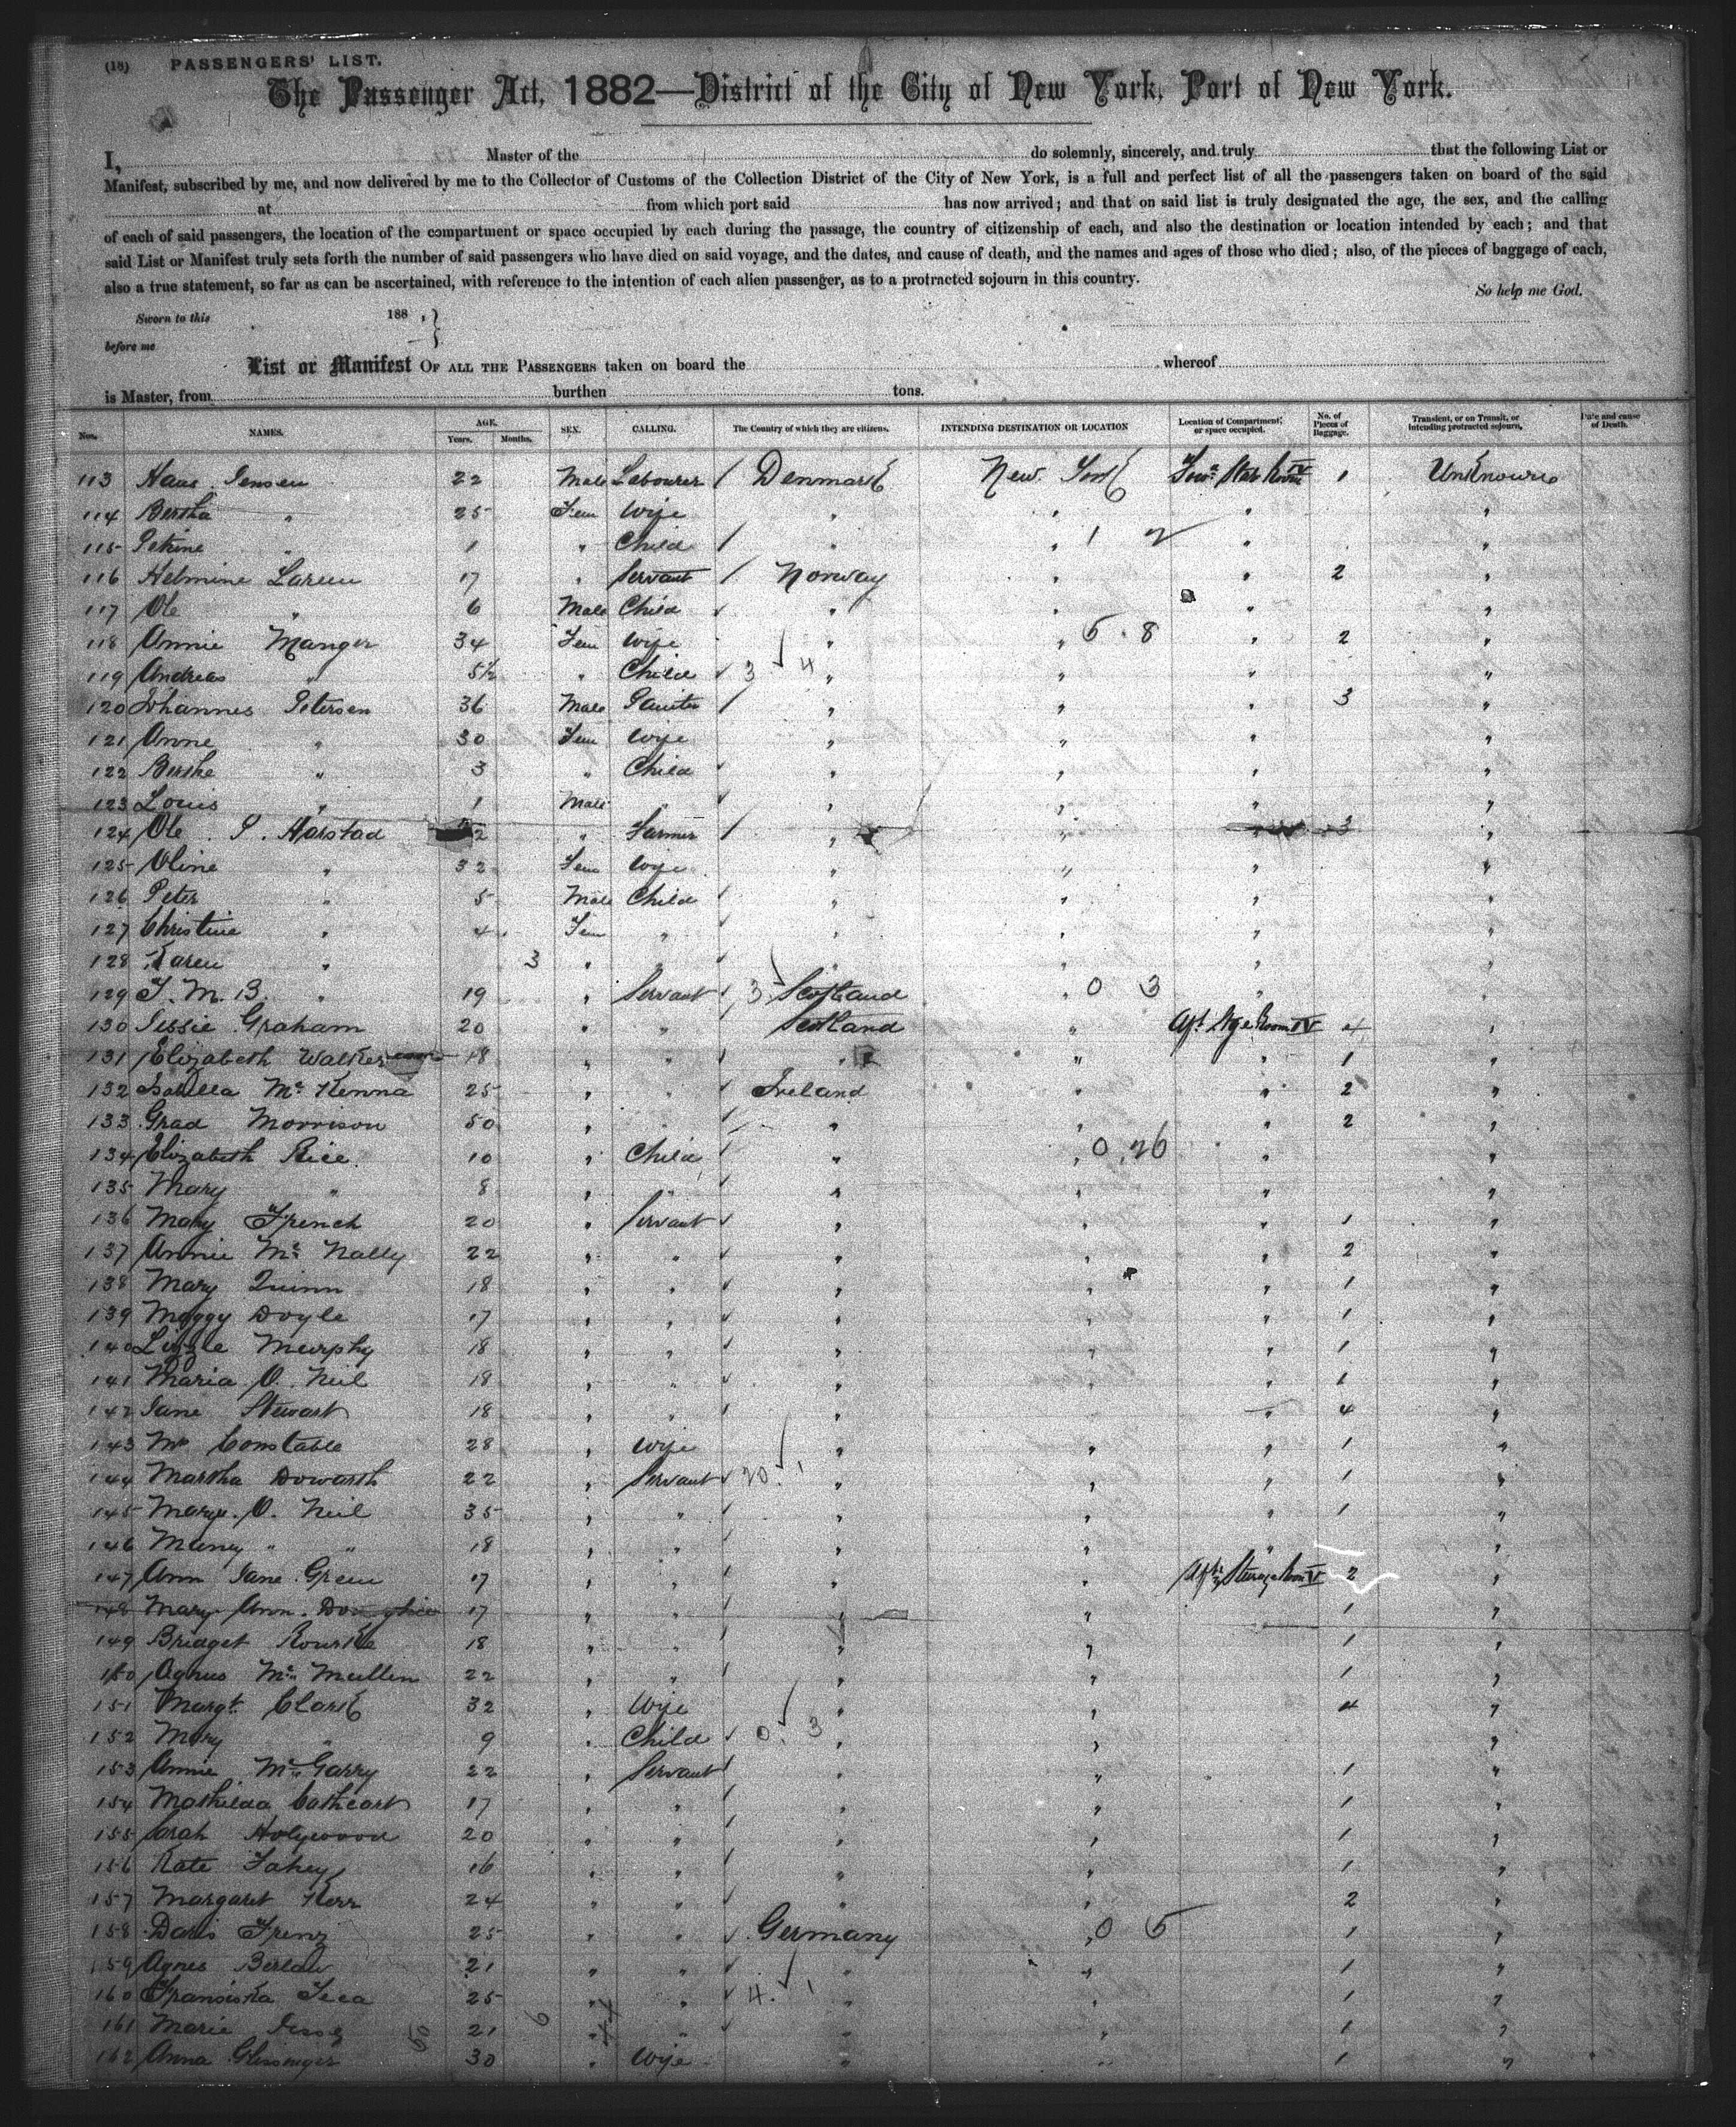 (18) PASSENGERS' LIST.
The Passenger Act, 1882—District of the City of New York, Port of New York.
I, Master of the do solemnly, sincerely, and truly that the following List or
Manifest, subscribed by me, and now delivered by me to the Collector of Customs of the Collection District of the City of New York, is a full and perfect list of all the passengers taken on board of the said
at from which port said has now arrived; and that on said list is truly designated the age, the sex, and the calling
of each of said passengers, the location of the compartment or space occupied by each during the passage, the country of citizenship of each, and also the destination or location intended by each; and that
said List or Manifest truly sets forth the number of said passengers who have died on said voyage, and the dates, and cause of death, and the names and ages of those who died; also, of the pieces of baggage of each,
also a true statement, so far as can be ascertained, with reference to the intention of each alien passenger, as to a protracted sojourn in this country.
So help me God.
Sworn to this 188 ,
before me
List or Manifest OF ALL THE PASSENGERS taken on board the whereof
is Master, from burthen tons.
Nos. NAMES. AGE. Years. Months. SEX. CALLING. The Country of which they are citizens. INTENDING DESTINATION OR LOCATION Location of Compartment or space occupied. No. of Pieces of Baggage. Transient, or on Transit, or intending protracted sojourn. Date and cause of Death.
113 Hans Jensen 22 Male Labourer / Denmark New York 1 Unknown
114 Bertha " 25 Fem Wife " " " "
115 Petrine " 1 " Child / " " 1 2 " "
116 Helmine Larsen 17 " Servant / Norway " " 2 "
117 Ole " 6 Male Child " " " "
118 Annie Manger 34 Fem Wife " " 5 . 8 " 2 "
119 Andreas " 5½ " Child 3 4 " " " "
120 Johannes Petersen 36 Male Painter / " " " 3 "
121 Anne " 30 Fem Wife " " " "
122 Berthe " 3 " Child " " " "
123 Louis " 1 Male " " " " "
124 Ole P. Harstad 2 " Farmer / " " " 3 "
125 Oline " 32 Fem Wife " " " "
126 Peter " 5 Male Child " " " "
127 Christine " 4 Fem " " " " "
128 Karen " 3 " " " " " "
129 J. M. B. " 19 " Servant 3 Scotland " 0 3 " "
130 Jessie Graham 20 " " Scotland " Aft Stge Room IV 4 "
131 Elizabeth Walker 18 " " " " " 1 "
132 Isabella Mc Kenna 25 " " Ireland " " 2 "
133 Grad Morrison 50 " " " " " 2 "
134 Elizabeth Rice 10 " Child " " 0 26 " "
135 Mary " 8 " " " " " "
136 Mary French 20 " Servant " " " 1 "
137 Annie Mc Nally 22 " " " " " 2 "
138 Mary Quinn 18 " " " " " 1 "
139 Maggy Doyle 17 " " " " " 1 "
140 Lizzie Murphy 18 " " " " " 1 "
141 Maria O. Neil 18 " " " " " 1 "
142 Jane Stewart 18 " " " " " 4 "
143 Constable 28 " Wife " " " 1 "
144 Martha Dowarth 22 " Servant 20 1 " " " 1 "
145 Mary O. Neil 35 " " " " " 1 "
146 " " 18 " " " " " "
147 Ann Jane Green 17 " " " " Steerage Room IV 2 "
148 Mary Ann 17 " " " " 1 "
149 Bridget Rourke 18 " " " " 1 "
150 Agnus Mc Mullen 22 " " " " 1 "
151 Margt. Clark 32 " Wife " " 4 "
152 Mary " 9 " Child 0 3 " " "
153 Annie Mc Garry 22 " Servant " " 1 "
154 Mathilda Cathcart 17 " " " " 1 "
155 Sarah Holywood 20 " " " " 1 "
156 Kate Fahey 16 " " " " 1 "
157 Margaret Kerr 24 " " " " 2 "
158 Doris Frenz 25 " " Germany " 0 5 1 "
159 Agnes Berlau 21 " " " " 1 "
160 Fransiska 25 " " 4 1 " " 1 "
161 Marie 21 " " " " 1 "
162 Anna 30 " Wife " " 1 "